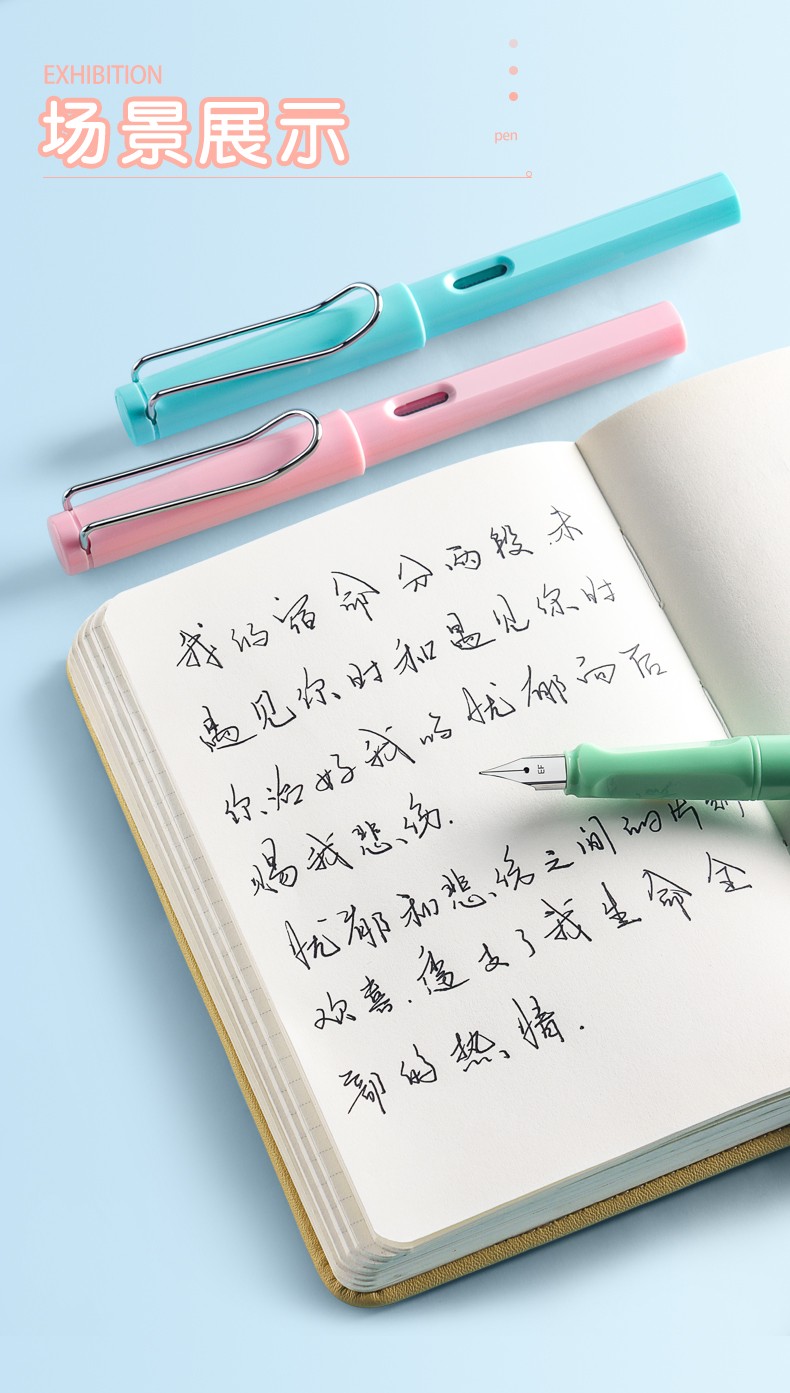 EXHIBITION
场景展示
pen
我的宿命分两段未
遇见你时和遇见你时
你治好我的忧郁而后
赐我悲伤.
忧郁和悲伤之间的片刻
欢喜.透支了我生命全
部的热情.
EF